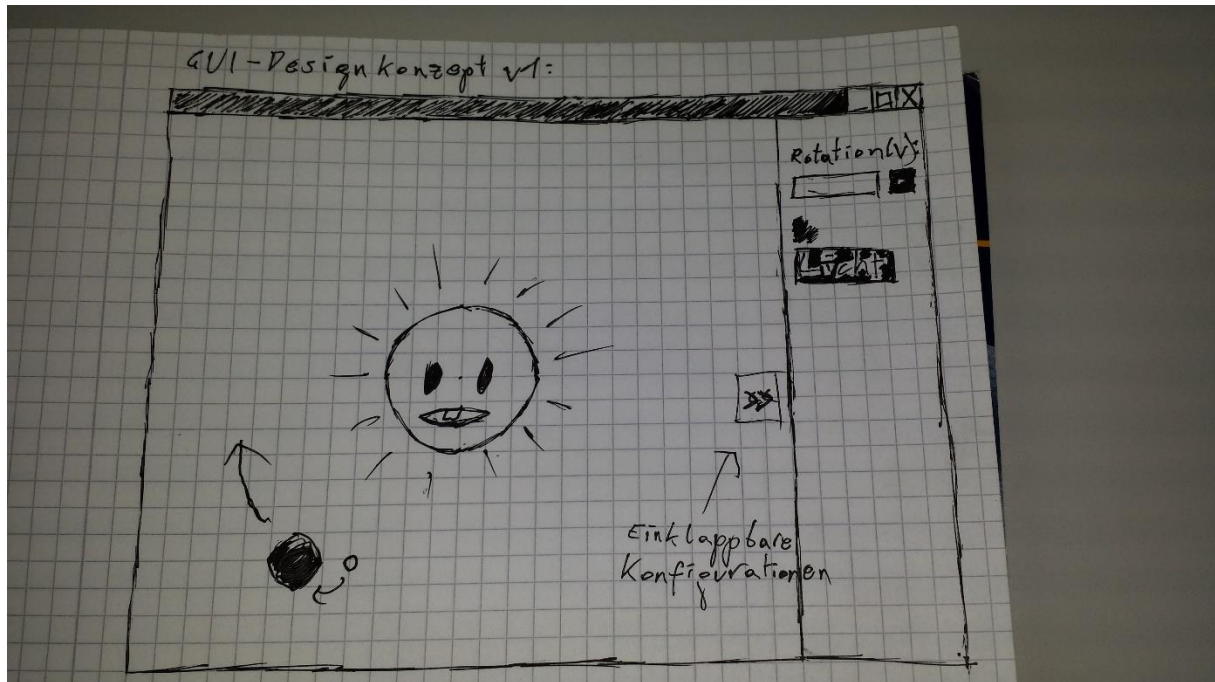 GUI-Designkonzept v1:
Rotation(v):
Licht
Einklappbare
Konfigurationen